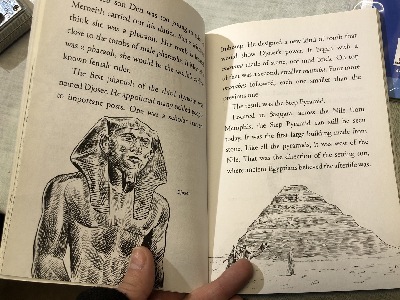 son Den was too young to
Merneith carried out his duties.
think she was a pharaoh. Her tomb is
close to the tombs of male pharaohs
was a pharaoh, she would be the
known female ruler.
The first pharaoh of the third dynasty was
named Djoser. He appointed many nobles
to important posts. One was a scholar named
Djoser
Imhotep. He designed a new kind of tomb that
would show Djoser's power. It began with a
mastaba made of stone, not mud brick. On top
of that was a second, smaller mastaba. Four more
mastabas followed, each one smaller than the
previous one.
The result was the Step Pyramid.
Located in Saqqara, across the Nile from
Memphis, the Step Pyramid can still be seen
today. It was the first large building made from
stone. Like all the pyramids, it was west of the
Nile. That was the direction of the setting sun,
where ancient Egyptians believed the afterlife was.